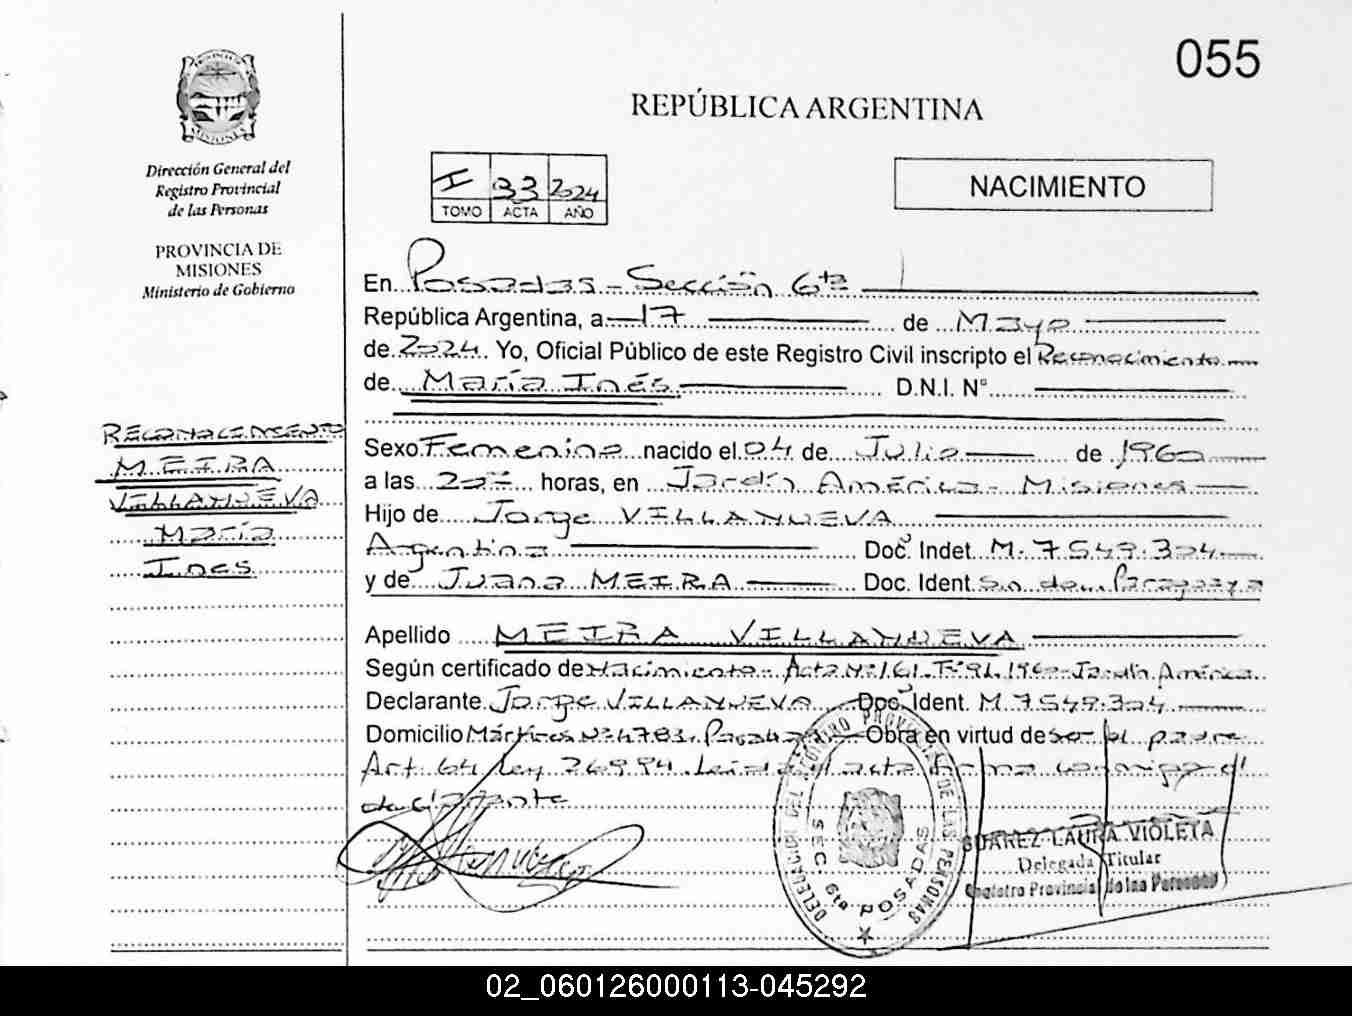 055
REPÚBLICA ARGENTINA
MISIONES
Dirección General del
Registro Provincial
de las Personas
PROVINCIA DE
MISIONES
Ministerio de Gobierno
I 33 2024
TOMO ACTA AÑO
NACIMIENTO
En Posadas - Sección 6ta
República Argentina, a 17 de Mayo
de 2024. Yo, Oficial Público de este Registro Civil inscripto el Reconocimiento
de María Inés D.N.I. N°
Sexo Femenino nacido el 04 de Julio de 1960
a las horas, en Jardín América - Misiones
Hijo de Jorge VILLANUEVA
Argentina Doc. Indet M. 7.549.304
y de Juana MEIRA Doc. Ident Sin doc. Paraguaya
Apellido MEIRA VILLANUEVA
Según certificado de Nacimiento - Acta N°161. T°91. 1960 - Jardín América
Declarante Jorge VILLANUEVA Doc. Ident. M. 7.549.304
Domicilio N°4783. Posadas Obra en virtud de ser el padre
Art. 64 Ley 26994. Leída el acta firma conmigo el
declarante
RECONOCIMIENTO
MEIRA
VILLANUEVA
María
Ines
DELEGACION DEL REGISTRO PROVINCIAL DE LAS PERSONAS
SEC. 6ta POSADAS
SUAREZ LAURA VIOLETA
Delegada Titular
Registro Provincial de las Personas
02_060126000113-045292